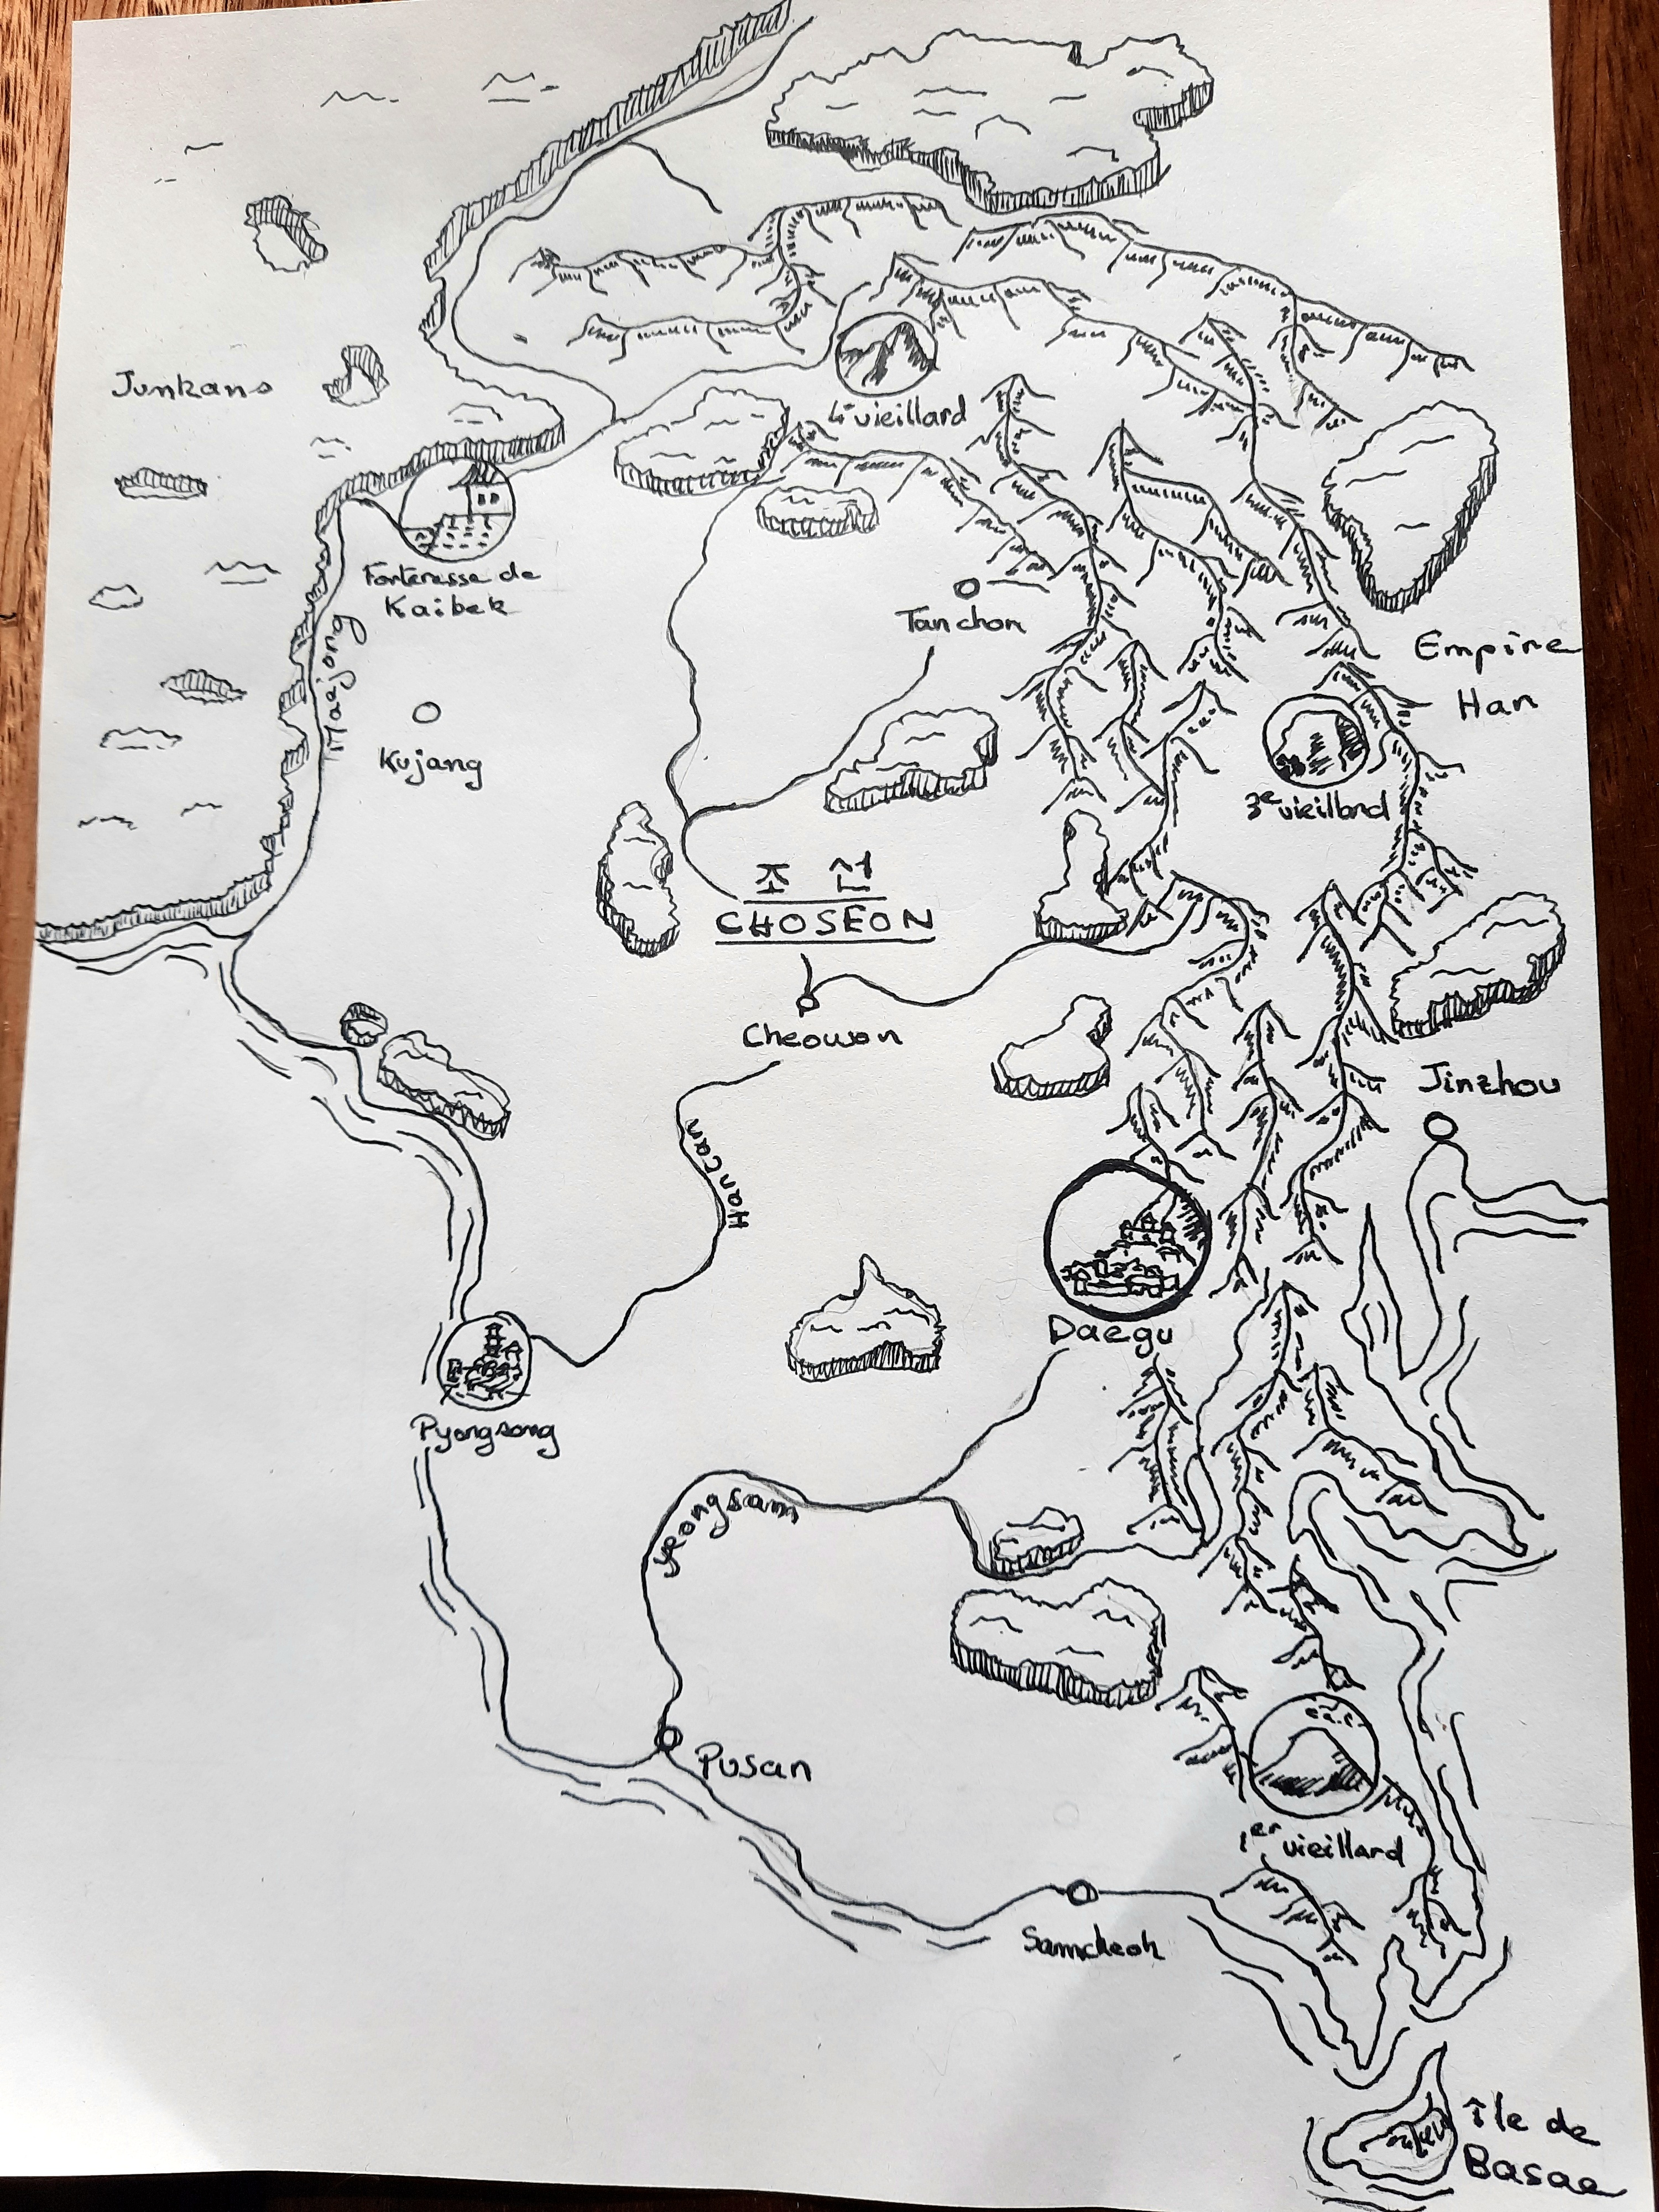 Junkans
4e vieillard
Forteresse de
Kaibek
Tanchon
Empire
Han
Majong
Kujang
3e vieillard
조 선
CHOSEON
Cheowon
Jinzhou
Hancan
Daegu
Pyongsong
Yeongsam
Pusan
1er vieillard
Samcheok
île de
Basae